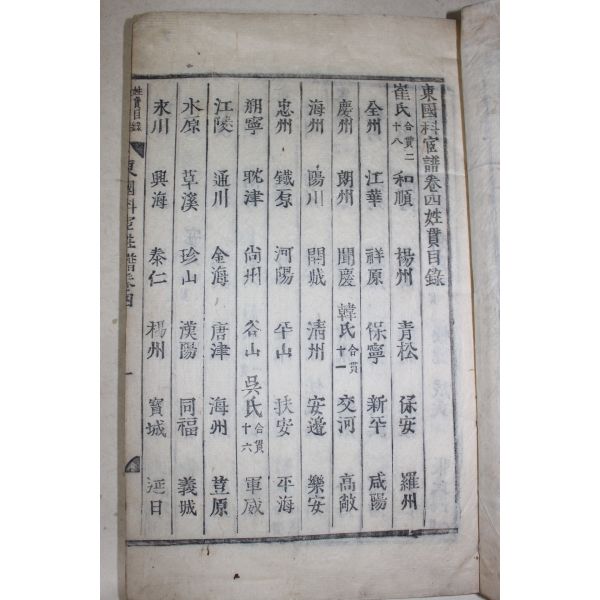 東國科宦譜卷四姓貫目錄
崔氏合貫二十八 和順 楊州 青松 保安 羅州
全州 江華 祥原 保寧 新平 咸陽
慶州 朗州 聞慶 韓氏合貫十一 交河 高敞
海州 陽川 開城 清州 安邊 樂安
忠州 鐵原 河陽 平山 扶安 平海
朔寧 耽津 尙州 谷山 吳氏合貫十六 軍威
江陵 通川 金海 唐津 海州 荳原
水原 草溪 珍山 漢陽 同福 義城
永川 興海 泰仁 楊州 寶城 延日
姓貫目錄 東國科宦姓譜卷四 一